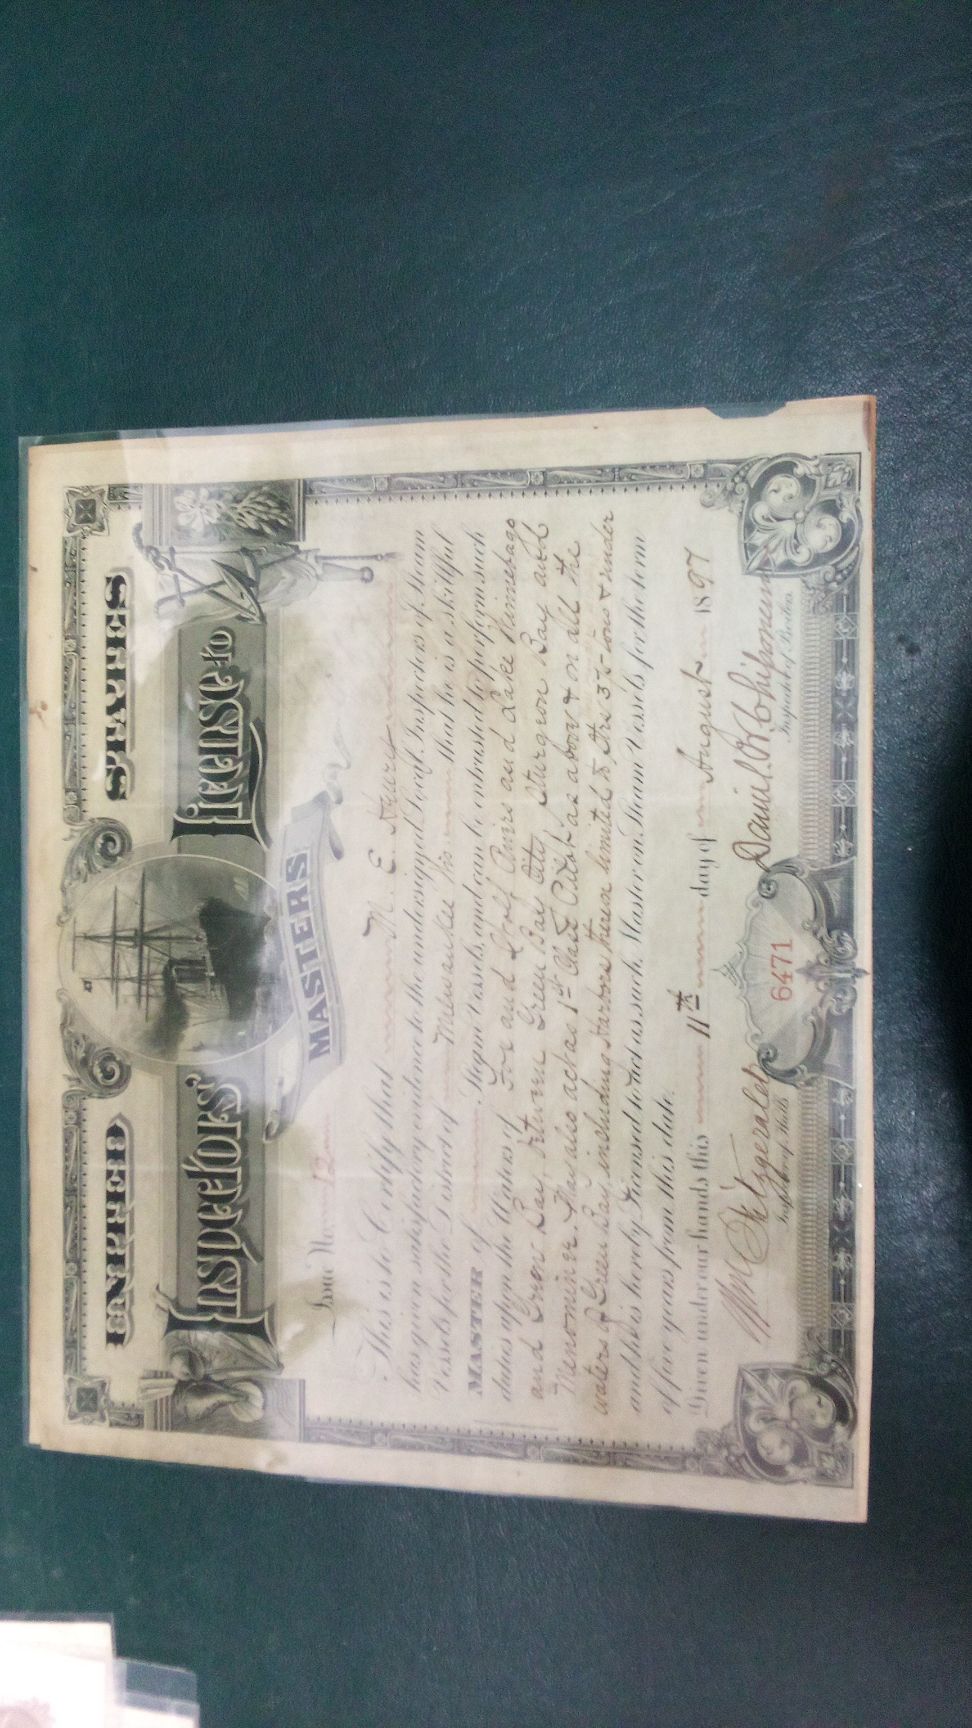 UNITED STATES
Inspectors' License to
MASTERS
Issue No. 12
This is to Certify that M. E.
has given satisfactory evidence to the undersigned Local Inspectors of Steam
Vessels for the District of Milwaukee Wis that he is a skillful
MASTER of Steam Vessels, and can be entrusted to perform such
duties upon the Waters of Fox and Wolf Rivers and Lake Winnebago
and Green Bay, between Green Bay City, Sturgeon Bay and
Menominee. Has also acted as 1st Class Pilot as above & on all the
waters of Green Bay, including Harbors therein limited to Strs 35 tons & under
and he is hereby licensed to act as such Master on Steam Vessels for the term
of five years from this date.
Given under our hands this 11th day of August 1897
Wm Fitzgerald Daniel W Chipman
Inspector of Hulls. Inspector of Boilers.
6471